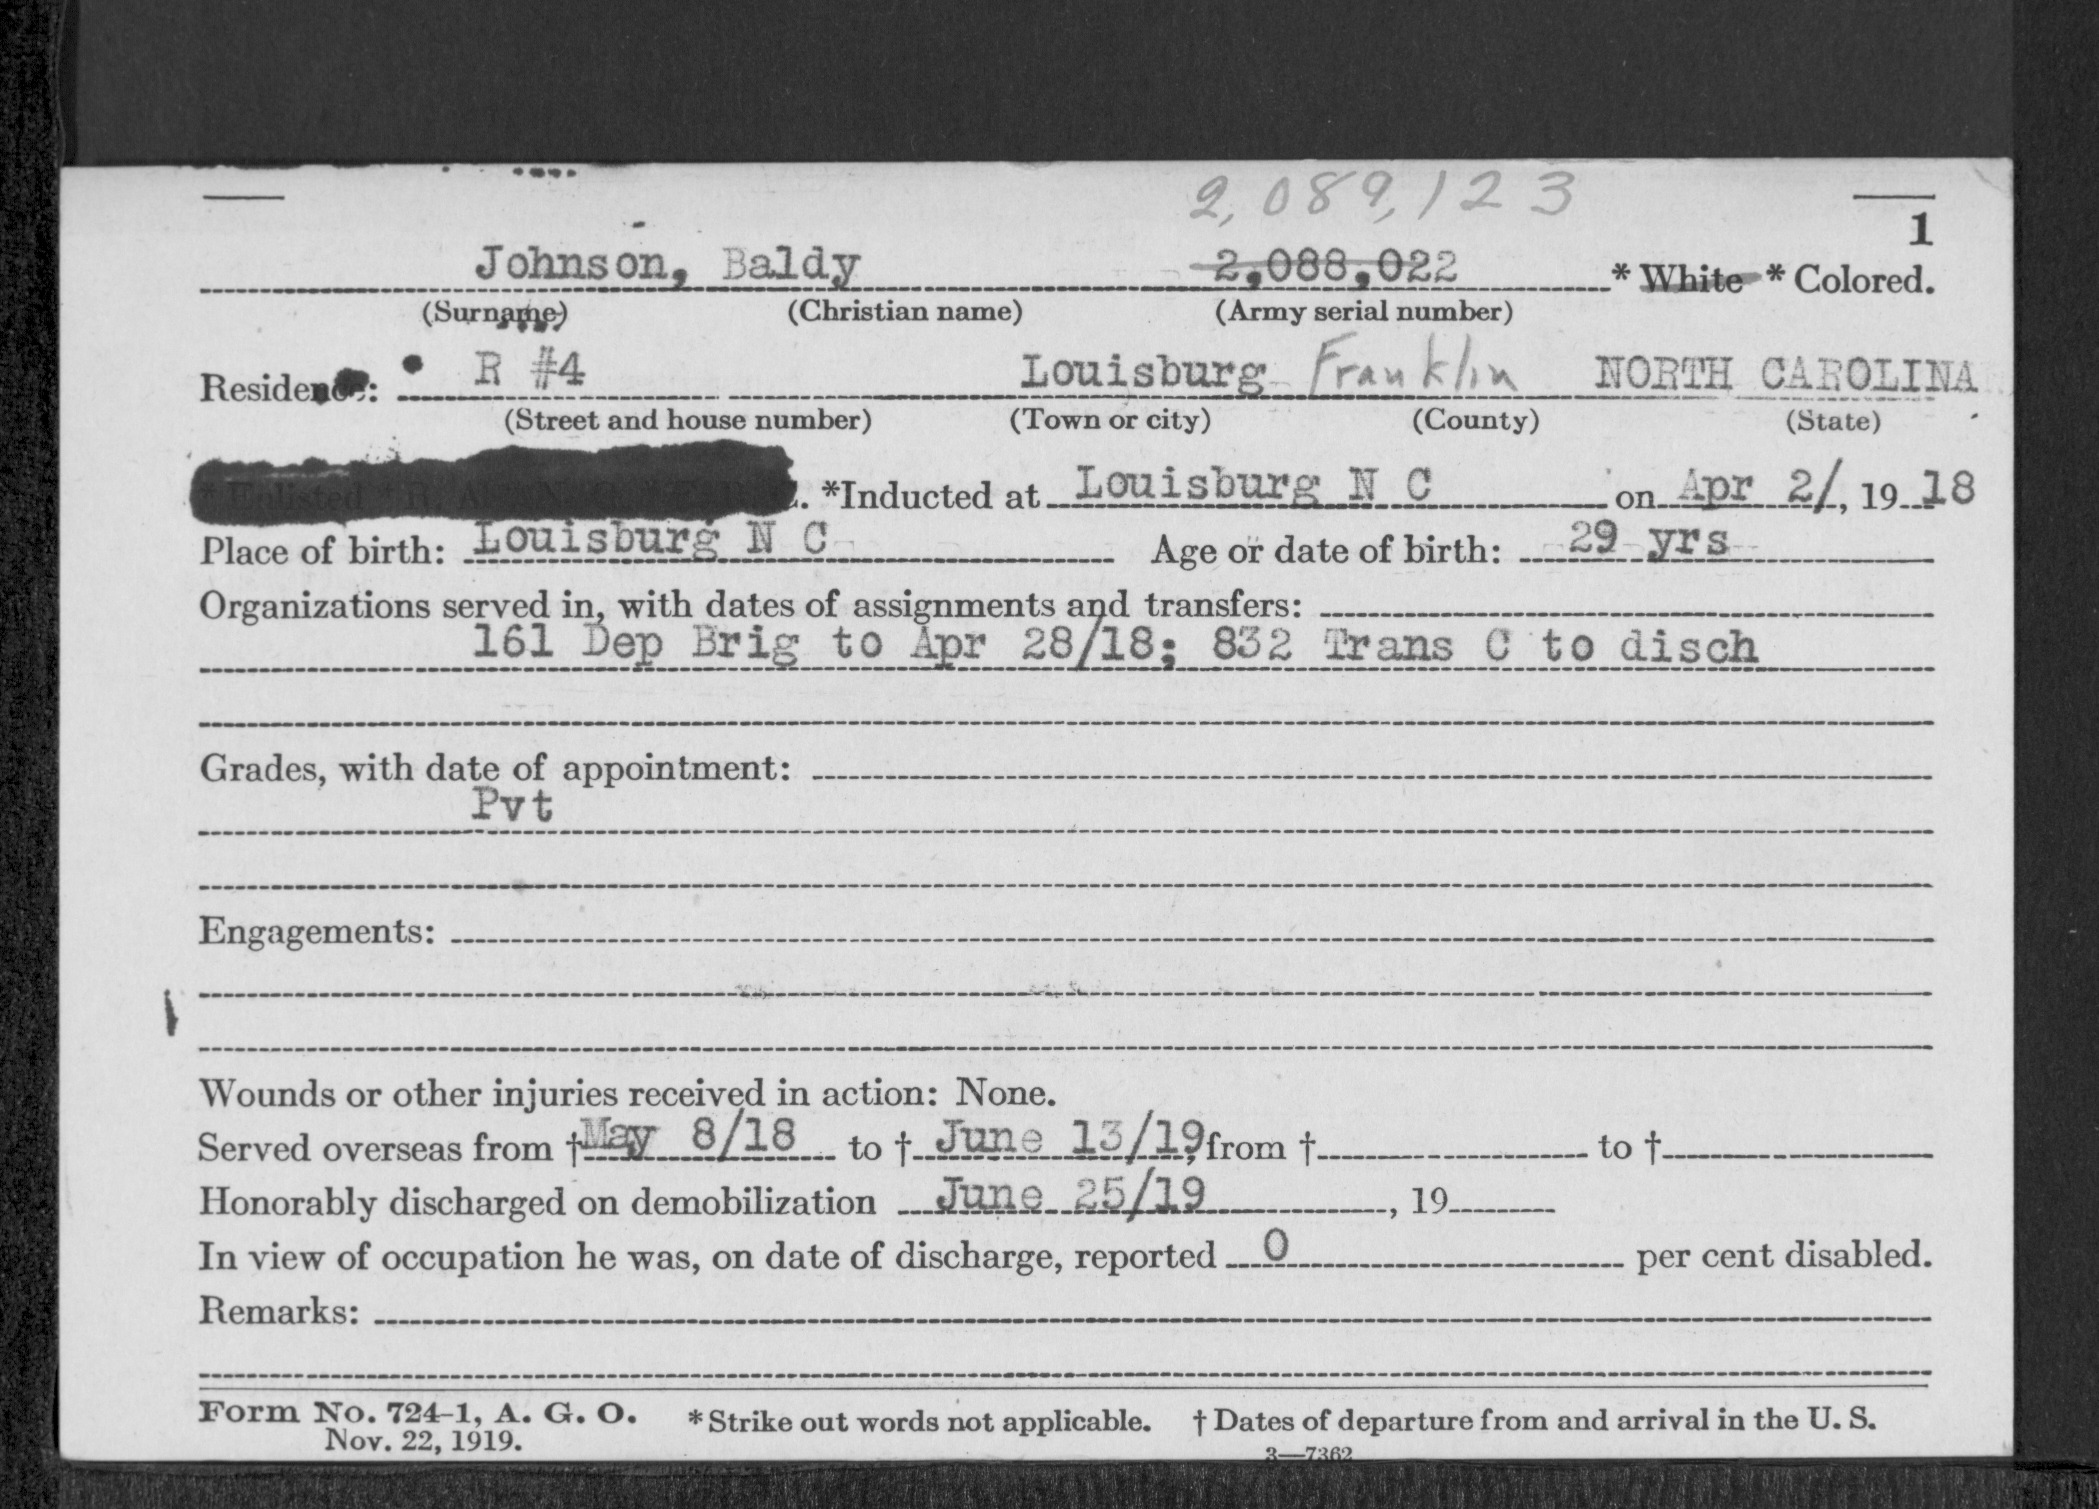 2,089,123
1
Johnson, Baldy 2,088,022 * White * Colored.
(Surname) (Christian name) (Army serial number)
Residence: R #4 Louisburg Franklin NORTH CAROLINA
(Street and house number) (Town or city) (County) (State)
* Enlisted *Inducted at Louisburg N C on Apr 2/, 19 18
Place of birth: Louisburg N C Age or date of birth: 29 yrs
Organizations served in, with dates of assignments and transfers:
161 Dep Brig to Apr 28/18; 832 Trans C to disch
Grades, with date of appointment:
Pvt
Engagements:
Wounds or other injuries received in action: None.
Served overseas from † May 8/18 to † June 13/19, from † to †
Honorably discharged on demobilization June 25/19, 19
In view of occupation he was, on date of discharge, reported 0 per cent disabled.
Remarks:
Form No. 724-1, A. G. O. * Strike out words not applicable. † Dates of departure from and arrival in the U. S.
Nov. 22, 1919.
3—7362